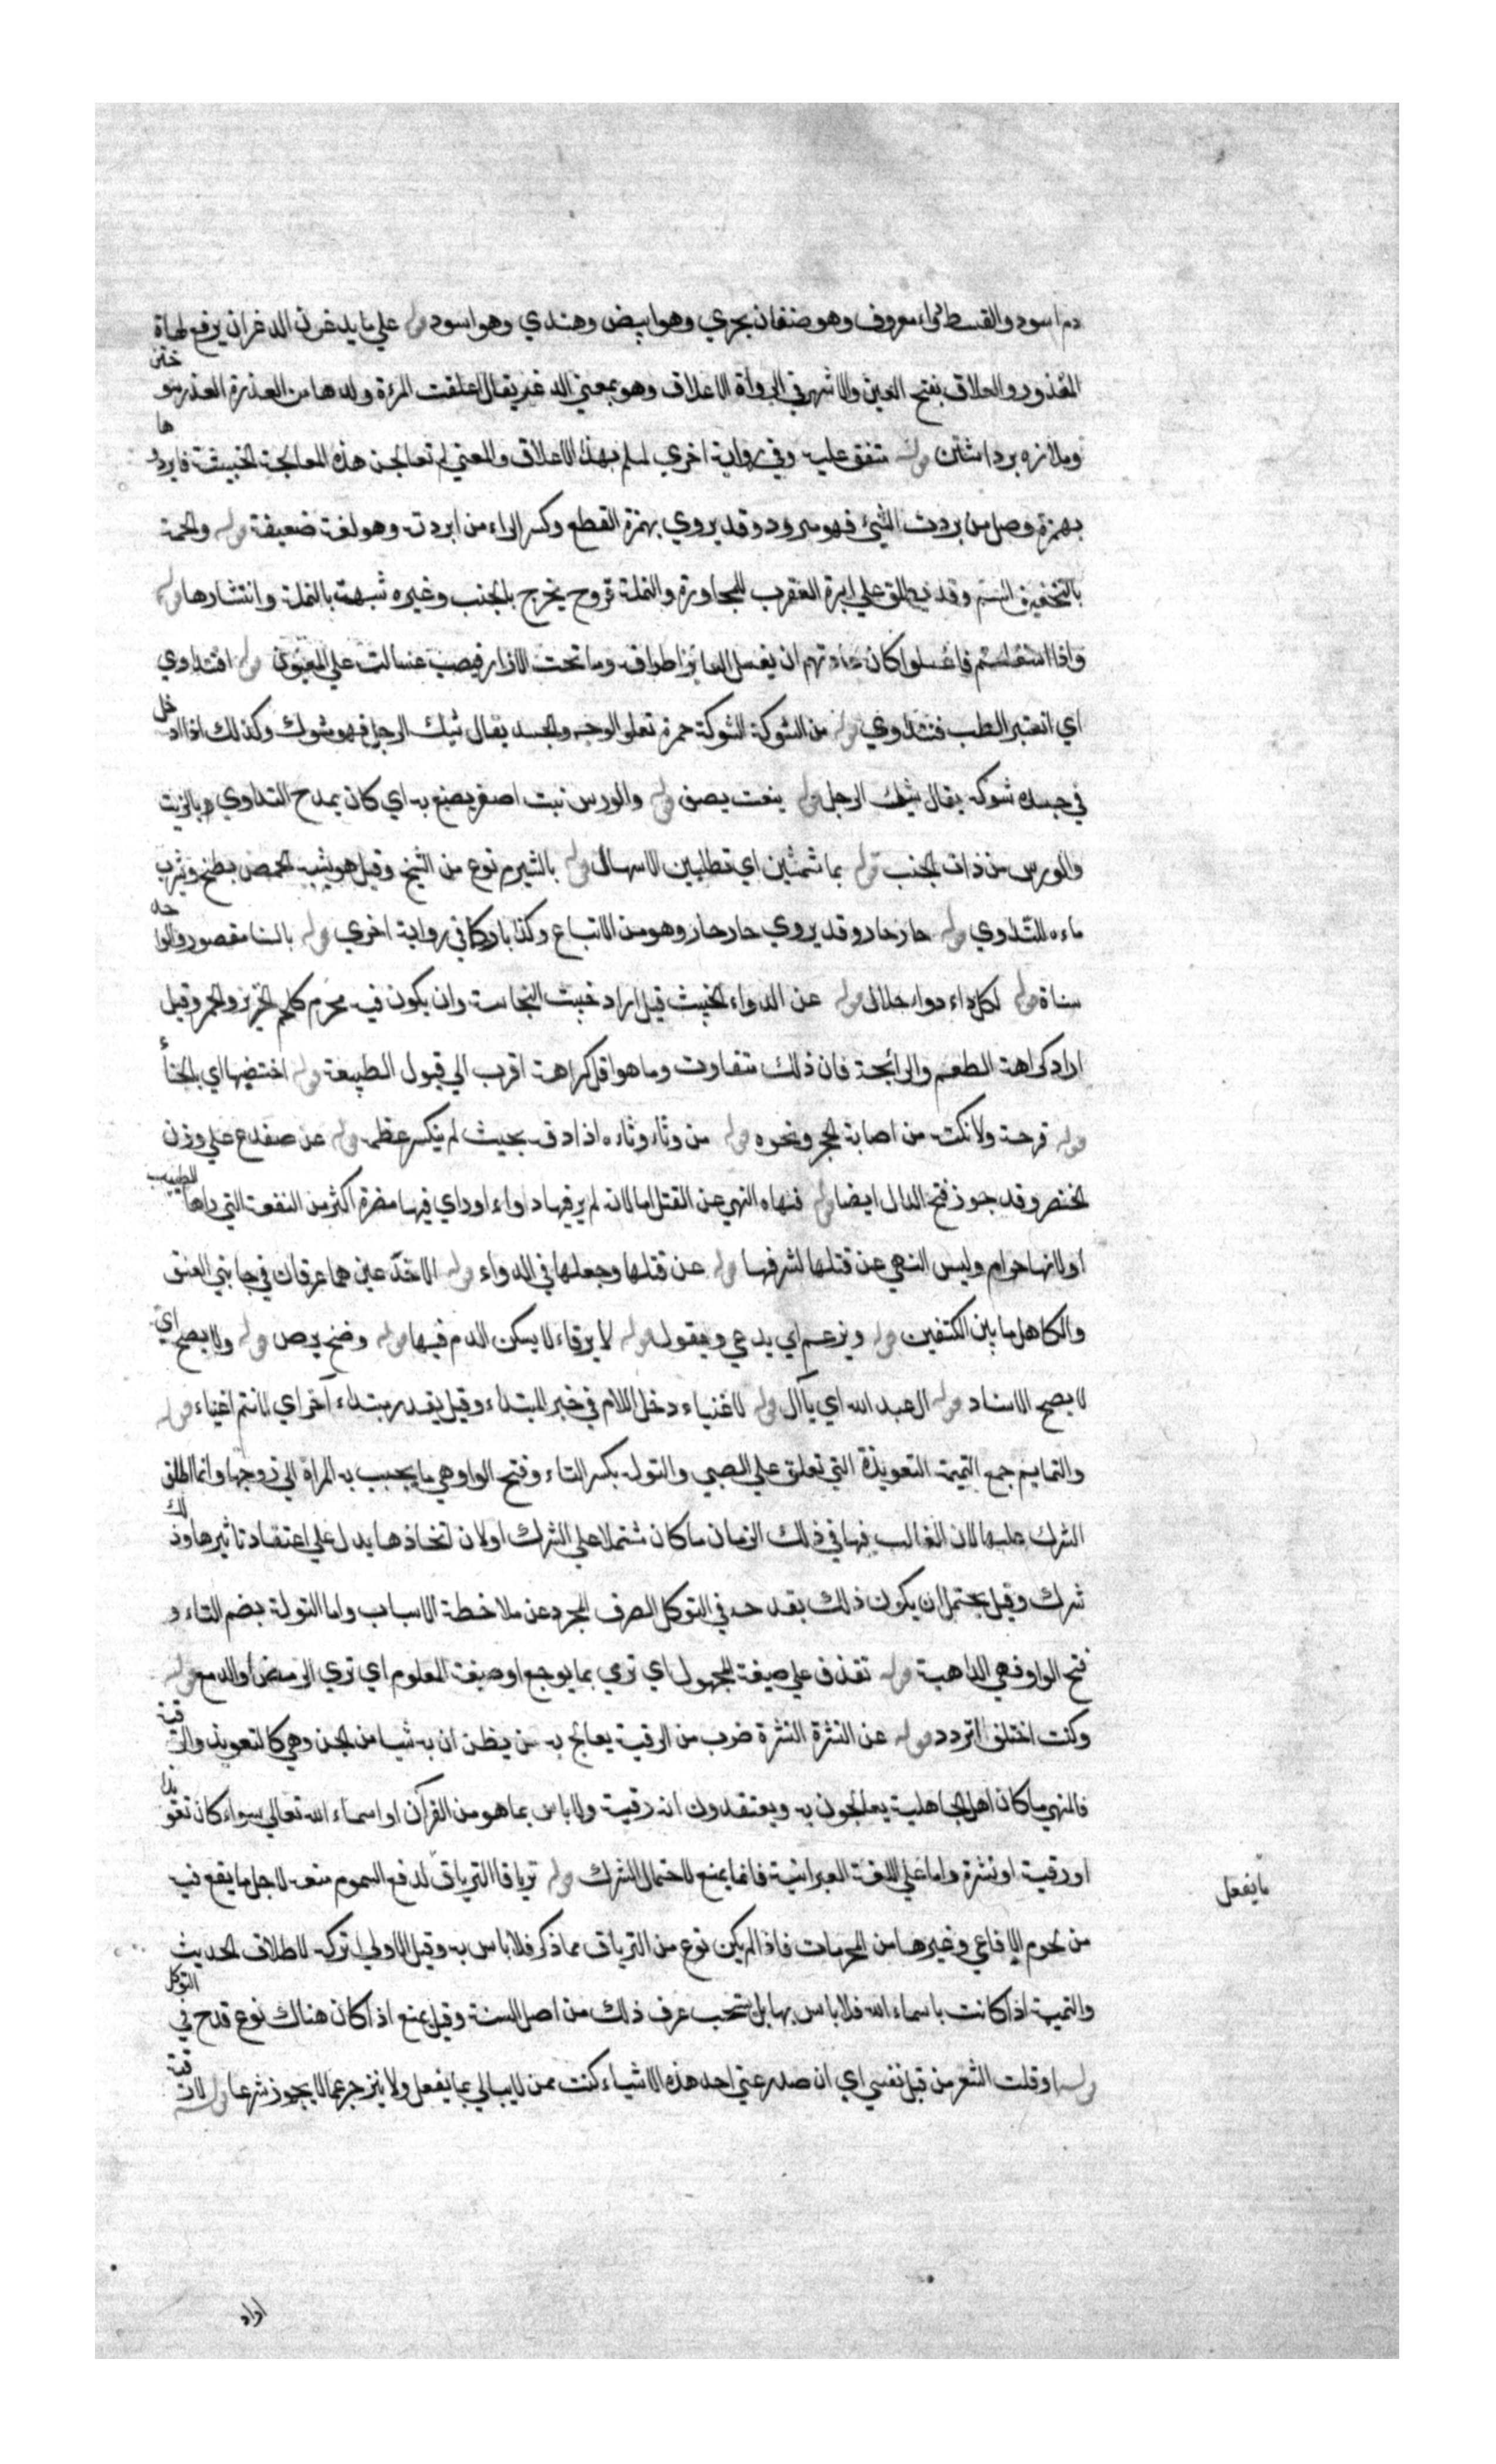 دم اسود والقسط دواء معروف وهو صنفان بحري وهو ابيض وهندي وهو اسود قوله علي ما يدغرن الدغر ان يرفع لهاة
المعذور والعلاق بفتح العين والاشهر في الرواة الاعلاق وهو بمعني الدغر يقال اعلقت المرءة ولدها من العذرة العذر
متفق عليه وفي رواية اخري لمسلم بهذا الاعلاق والمعني لم تعالجن هذه المعالجة الخبيثة فابردو ها
بهمزة وصل من بردت الشيء فهو مبرود وقد يروي بهمزة القطع وكسر الراء من ابردت وهو لغة ضعيفة قوله والحمة
بالتخفيف السم وقد يطلق علي ابرة العقرب للمجاورة والنملة قروح يخرج بالجنب وغيره شبهت بالنملة وانتشارها قوله
واذا استغسلتم فاغسلوا كان عادتهم ان يغسل العاين اطرافه وما تحت الازار فيصب غسالته علي المعيون قوله افنتداوي
اي انعتبر الطب فنتداوي قوله من الشوكة الشوكة حمرة تعلو الوجه والجسد يقال شيك الرجل فهو مشوك وكذلك اذا ادخل
في جسده شوكه يقال شيك الرجل قوله ينعت يصف قوله والورس نبت اصفر يصبغ به اي كان يمدح التداوي بالزيت
والورس من ذات الجنب قوله بما تستمشين اي تطلبين الاسهال قوله بالشبرم نوع من الشيخ وقيل هو يشبه الحمص يطبخ ويشرب
ماءه للتداوي قوله حار حار وقد يروي حار جار وهو من الاتباع وكذا يار كما في رواية اخري قوله بالسنا مقصور والواحده
سناة قوله لكل داء دواء حلال قوله عن الدواء الخبيث قيل اراد خبث النجاسة وان يكون فيه محرم كلحم الخنزير والخمر وقيل
اراد كراهة الطعم والرائحة فان ذلك متفاوت وما هو اقل كراهة اقرب الي قبول الطبيعة قوله اختضبها اي بالحناء
قوله قرحة ولا نكتة من اصابة الحجر ونحوه قوله من وثاء وثاءه اذا دق بحيث لم ينكسر عظمه قوله عن ضفدع علي وزن
الخنصر وقد جوز فتح الدال ايضا قوله فنهاه النهي عن القتل اما لانه لم ير فيها دواء او راي فيها مضرة اكثر من النفعة التي راها الطبيب
او لانها حرام وليس النهي عن قتلها لشرفها قوله عن قتلها وجعلها في الدواء قوله الاخدعين هما عرقان في جانبي العنق
والكاهل ما بين الكتفين قوله ويزعم اي يدعي ويقول قوله لا يرقاء لا يسكن الدم فيها قوله وضح برص قوله ولا يصح اي
لا يصح الاسناد قوله ال عبد الله اي يا آل قوله لاغنياء دخل اللام في خبر المبتداء وقيل يقدر مبتداء آخر اي لانتم اغنياء قوله
والتمايم جمع التميمة التعويذة التي تعلق علي الصبي والتوله بكسر التاء وفتح الواو هي ما يحبب به المراة الي زوجها وانما اطلق
الشرك عليها لان الغالب فيها في ذلك الزمان ما كان مشتملا علي الشرك او لان اتخاذها يدل علي اعتقاد تاثيرها وذلك
شرك وقيل يحتمل ان يكون ذلك بقدحه في التوكل الصرف المجرد عن ملاحظة الاسباب واما التولة بضم التاء و
فتح الواو فهي الداهية قوله تقذف علي صيغة المجهول اي ترمي بما يوجع او صيغة المعلوم اي ترمي الرمص او الدمع قوله
وكنت اختلف التردد قوله عن النشرة النشرة ضرب من الرقية يعالج به من يظن ان به شيا من الجن وهي كالتعويذ والرقية
فالمنهي ما كان اهل الجاهلية يعالجون به ويعتقدون انه رقية ولا باس بما هو من القرآن او اسماء الله تعالي سواء كان تعويذا
او رقية او نشرة واما علي اللغة العبرانية فانما يمنع لاحتمال الشرك قوله ترياقا الترياق لدفع السموم منعه لاجل ما يقع فيه
من لحوم الافاعي وغيرها من المحرمات فاذا لم يكن نوع من الترياق مما ذكر فلا باس به وقيل الاولي تركه لاطلاق الحديث
والتميمة اذا كانت باسماء الله فلا باس بها بل يستحب عرف ذلك من اصل السنة وقيل يمنع اذا كان هناك نوع قدح في التوكل
قوله او قلت الشعر من قبل نفسي اي ان صدر عني احد هذه الاشياء كنت ممن لا يبالي بما يفعل ولا ينزجر عما لا يجوز شرعا قوله لارقية
ما يفعل
اراد